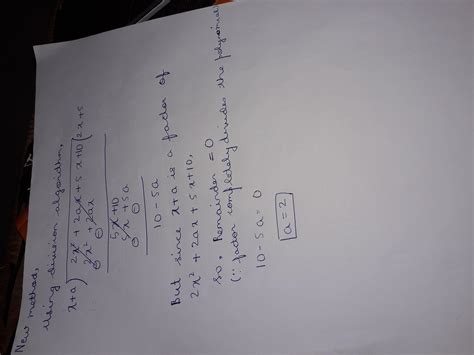 New method,
Using division algorithm,
x+a) 2x² + 2ax + 5x + 10 (2x+5
2x² + 2ax
⊖ ⊖
5x + 10
5x + 5a
⊖ ⊖
10 - 5a
But since x+a is a factor of
2x² + 2ax + 5x + 10,
So, Remainder = 0
(∵ factor completely divides the polynomial
10 - 5a = 0
a = 2